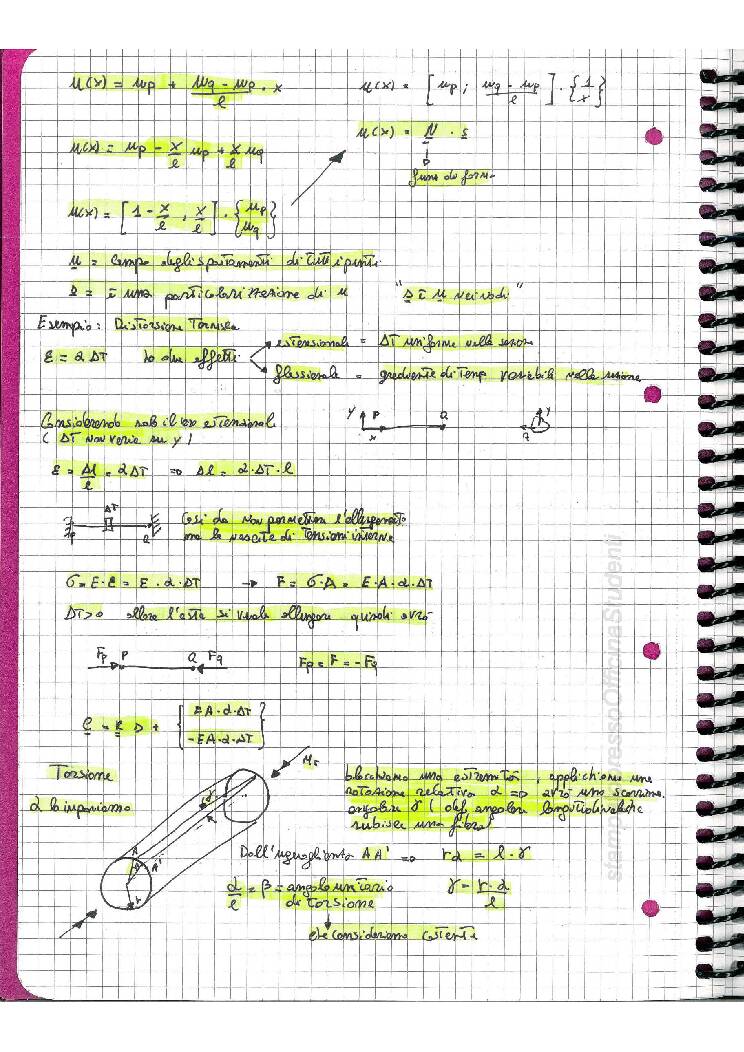 u(x) = up + (uq - up)/l · x
u(x) = [up ; (uq - up)/l] · {1 x}
u(x) = up - x/l up + x/l uq
u(x) = N · s
funz di forma
u(x) = [1 - x/l , x/l] · {up uq}
u = campo degli spostamenti di tutti i punti
s = è una particolarizzazione di u "s è u nei nodi"
Esempio: Distorsione Termica
ε = α ΔT ha due effetti
estensionale = ΔT uniforme nella sezione
flessionale = gradiente di Temp variabile nella sezione
Considerando solo il caso estensionale
(ΔT non varia su y)
y P Q y
x
ε = Δl/l = αΔT => Δl = α·ΔT·l
ΔT
P Q
Così da non permettere l'allungamento
ma la nascita di tensioni interne
σ = E·ε = E·α·ΔT → F = σ·A = E·A·α·ΔT
ΔT>0 allora l'asta si vuole allungare quindi avrò
Fp P Q Fq
Fp = F = -Fq
= K s + {EA·α·ΔT -EA·α·ΔT}
Torsione
Mt
α lo imponiamo
blocchiamo una estremità, applichiamo una
rotazione relativa α => avrò uno scorrim.
angolare γ (def angolare longitudinale che
subisce una fibra)
A A'
r
Dall'uguaglianza AA' => rα = l·γ
α/l = β = angolo unitario
di torsione
γ = r·α/l
che consideriamo costante
stam essoOfficinaStudenti